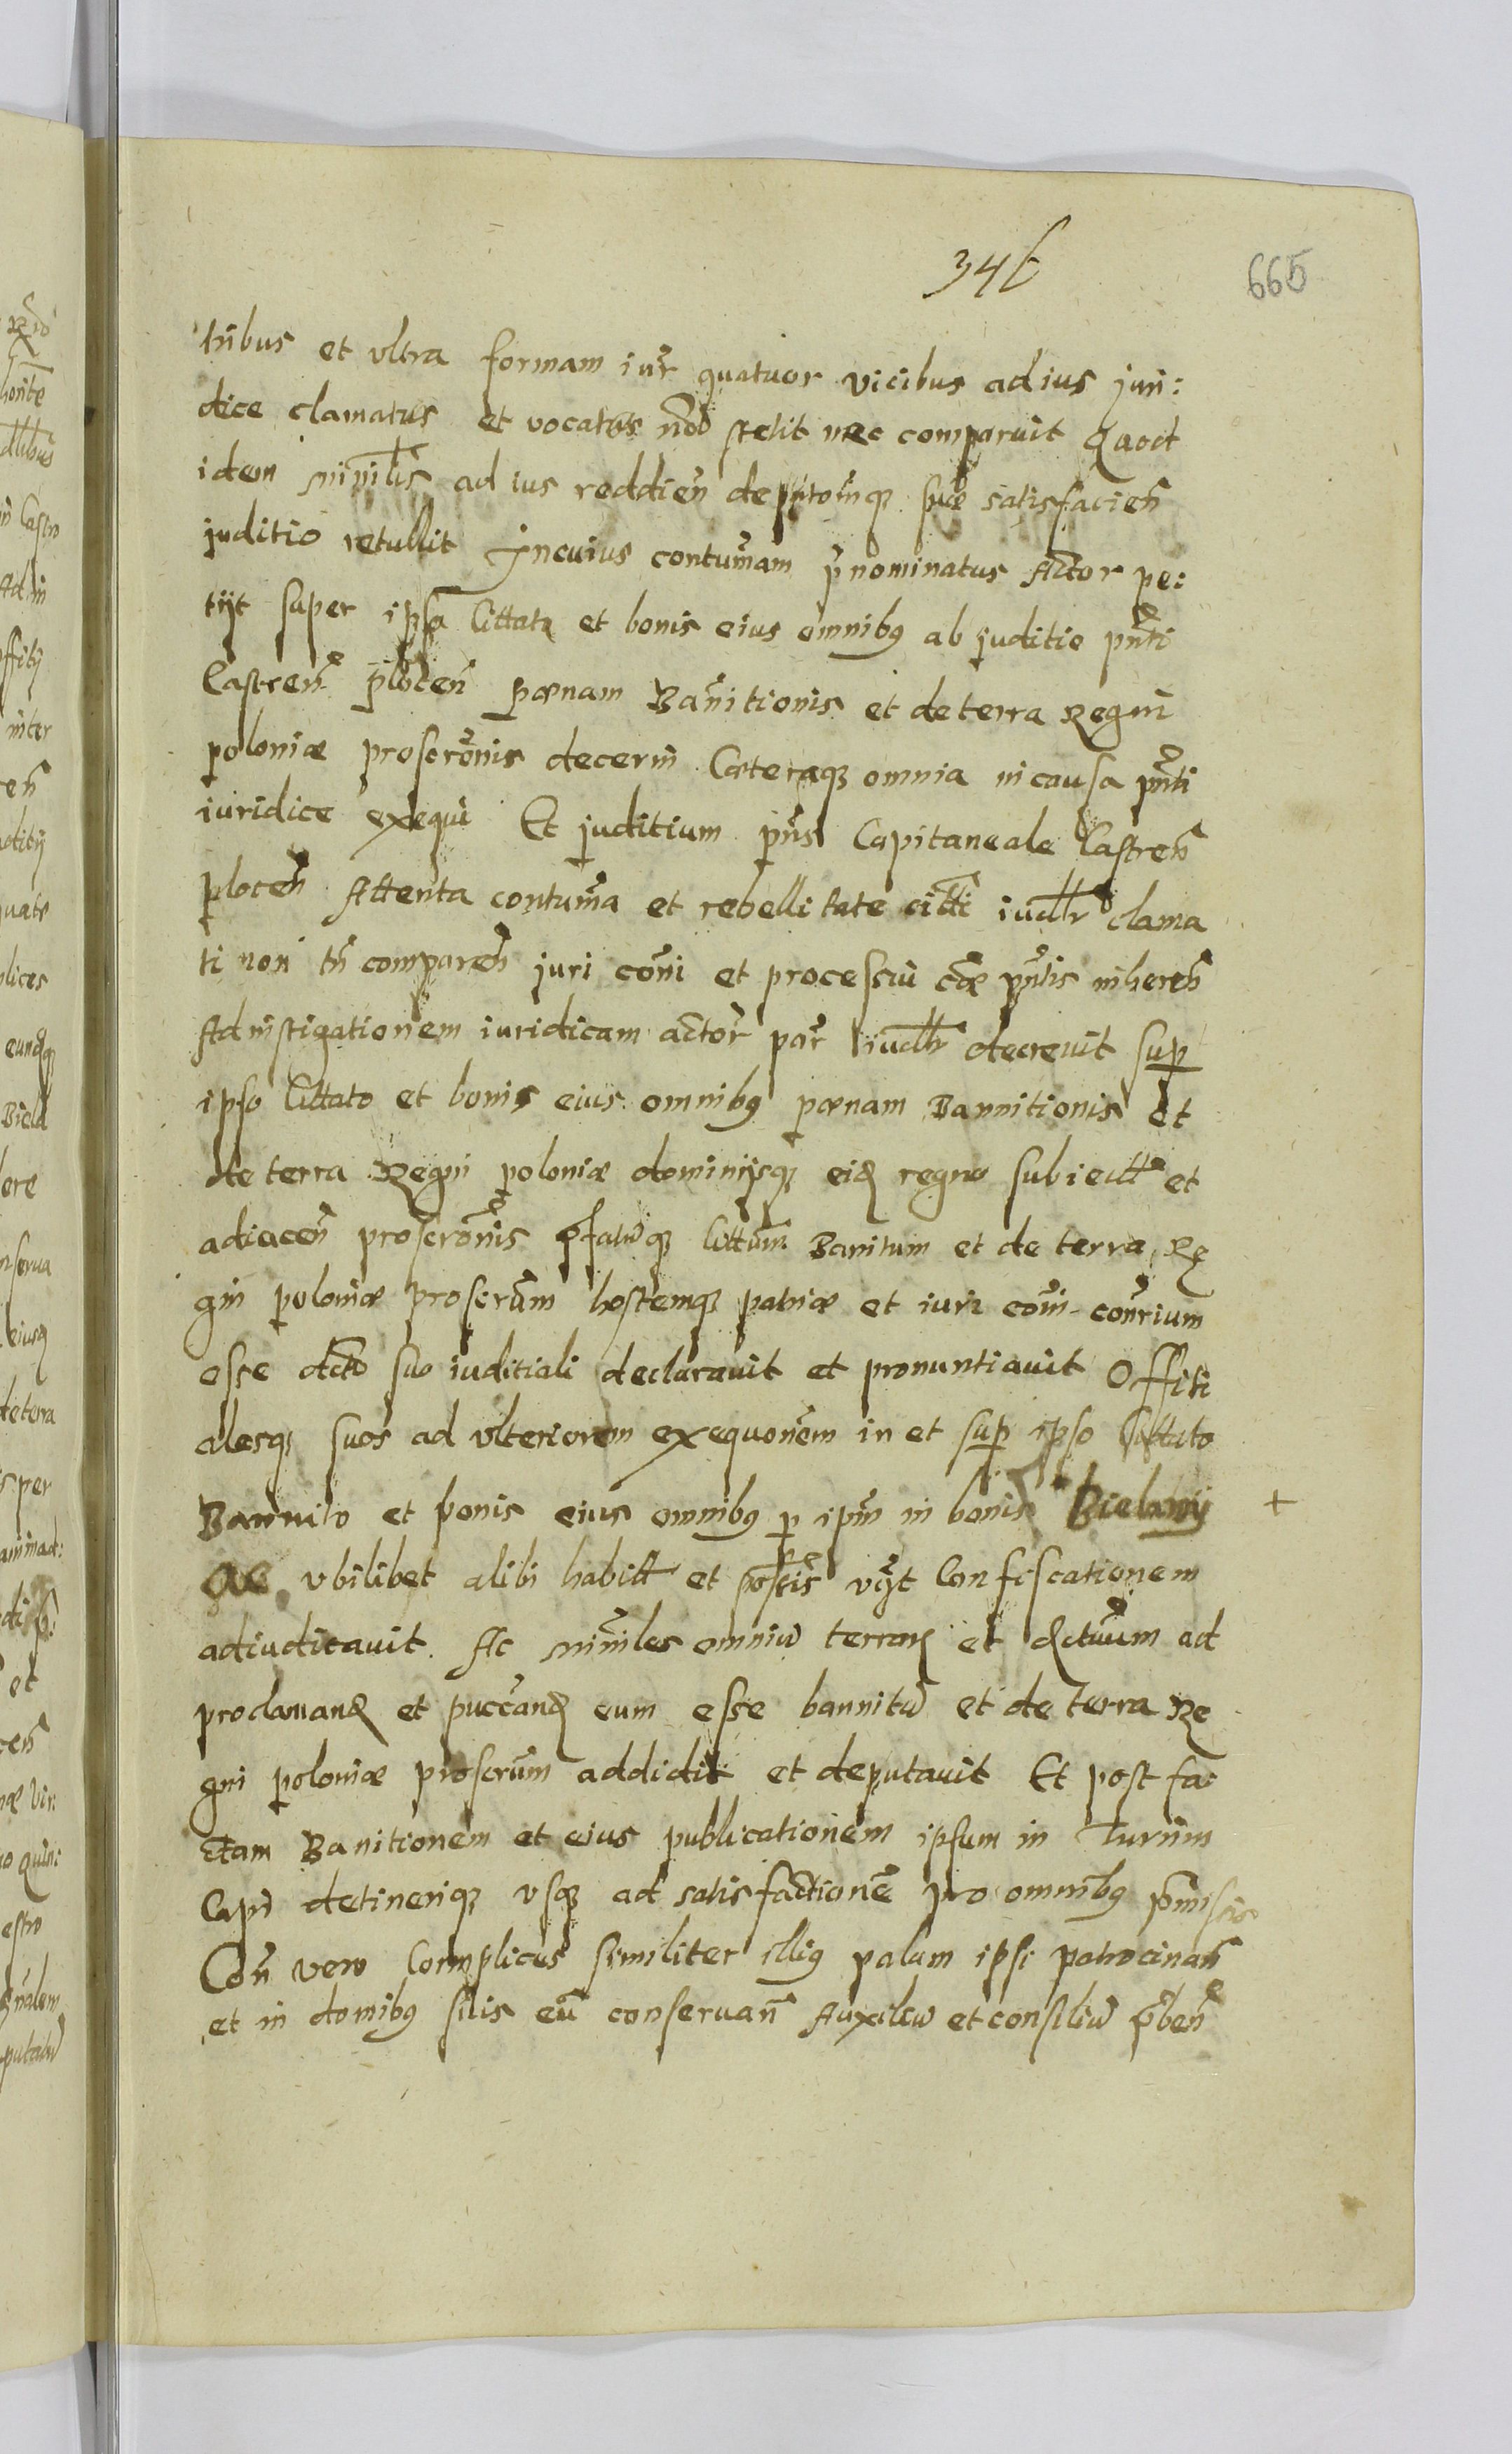 346
665
tribus et ultra formam iur̃ quatuor vicibus ad ius juri:
dice clamatus et vocatus nõ stetit nec comparuit Quod
idem miñilis ad ius reddieñ satisfacieñ
juditio retullit Incuius contum̃am p̃nominatus Actor pe:
tijt super ipso Cittato et bonis eius omnibus ab juditio pñti
Castreñ ploceñ pœnam Banitionis et de terra Regni
poloniæ proscrõnis decerni Cæteraq; omnia in causa pñti
iuridice exequi Et juditium pñs Capitaneale Castreñ
ploceñ Attenta contum̃a et rebellitate citti iudlr clama
ti non tñ compareñ juri com̃i et processui cæ pñtis inhereñ
Ad instigationem iuridicam actor̃ par̃ iudlr decrevit sup
ipso Cittato et bonis eius omnibus pœnam Bannitionis et
de terra Regni poloniæ dominijsq; eid regno subiectt et
adiaceñ proscrõnis p̃fatuq; Cittum̃ Banitum et de terra Re
gni poloniæ proscrum̃ hostemq; patriæ et iuri com̃i cont̃rium
esse dcto suo iuditiali declaravit et pronuntiavit Offiti
alesq; suos ad ulteriorem exequonem̃ in et sup ipso Cittato
Bannito et bonis eius omnibus p ipm̃ in bonis Bielanij +
Ac ubilibet alibi habitt et possis̃ Confiscationem
adiuditavit Ac miñiles omniũ terrar et dctuum ad
proclamand et puccand eum esse bannitũ et de terra Re
gni poloniæ proscrum̃ addidit et deputavit Et post fa:
ctam Banitionem et eius publicationem ipsum in Turrim
Capi detineriq; usq; ad satisfactionẽ pro omnibus p̃missis
Coñ vero Complices similiter illius palam ipsi patrocinañ
et in domibus suis eũ conservañ Auxiliũ et consiliũ p̃beñ